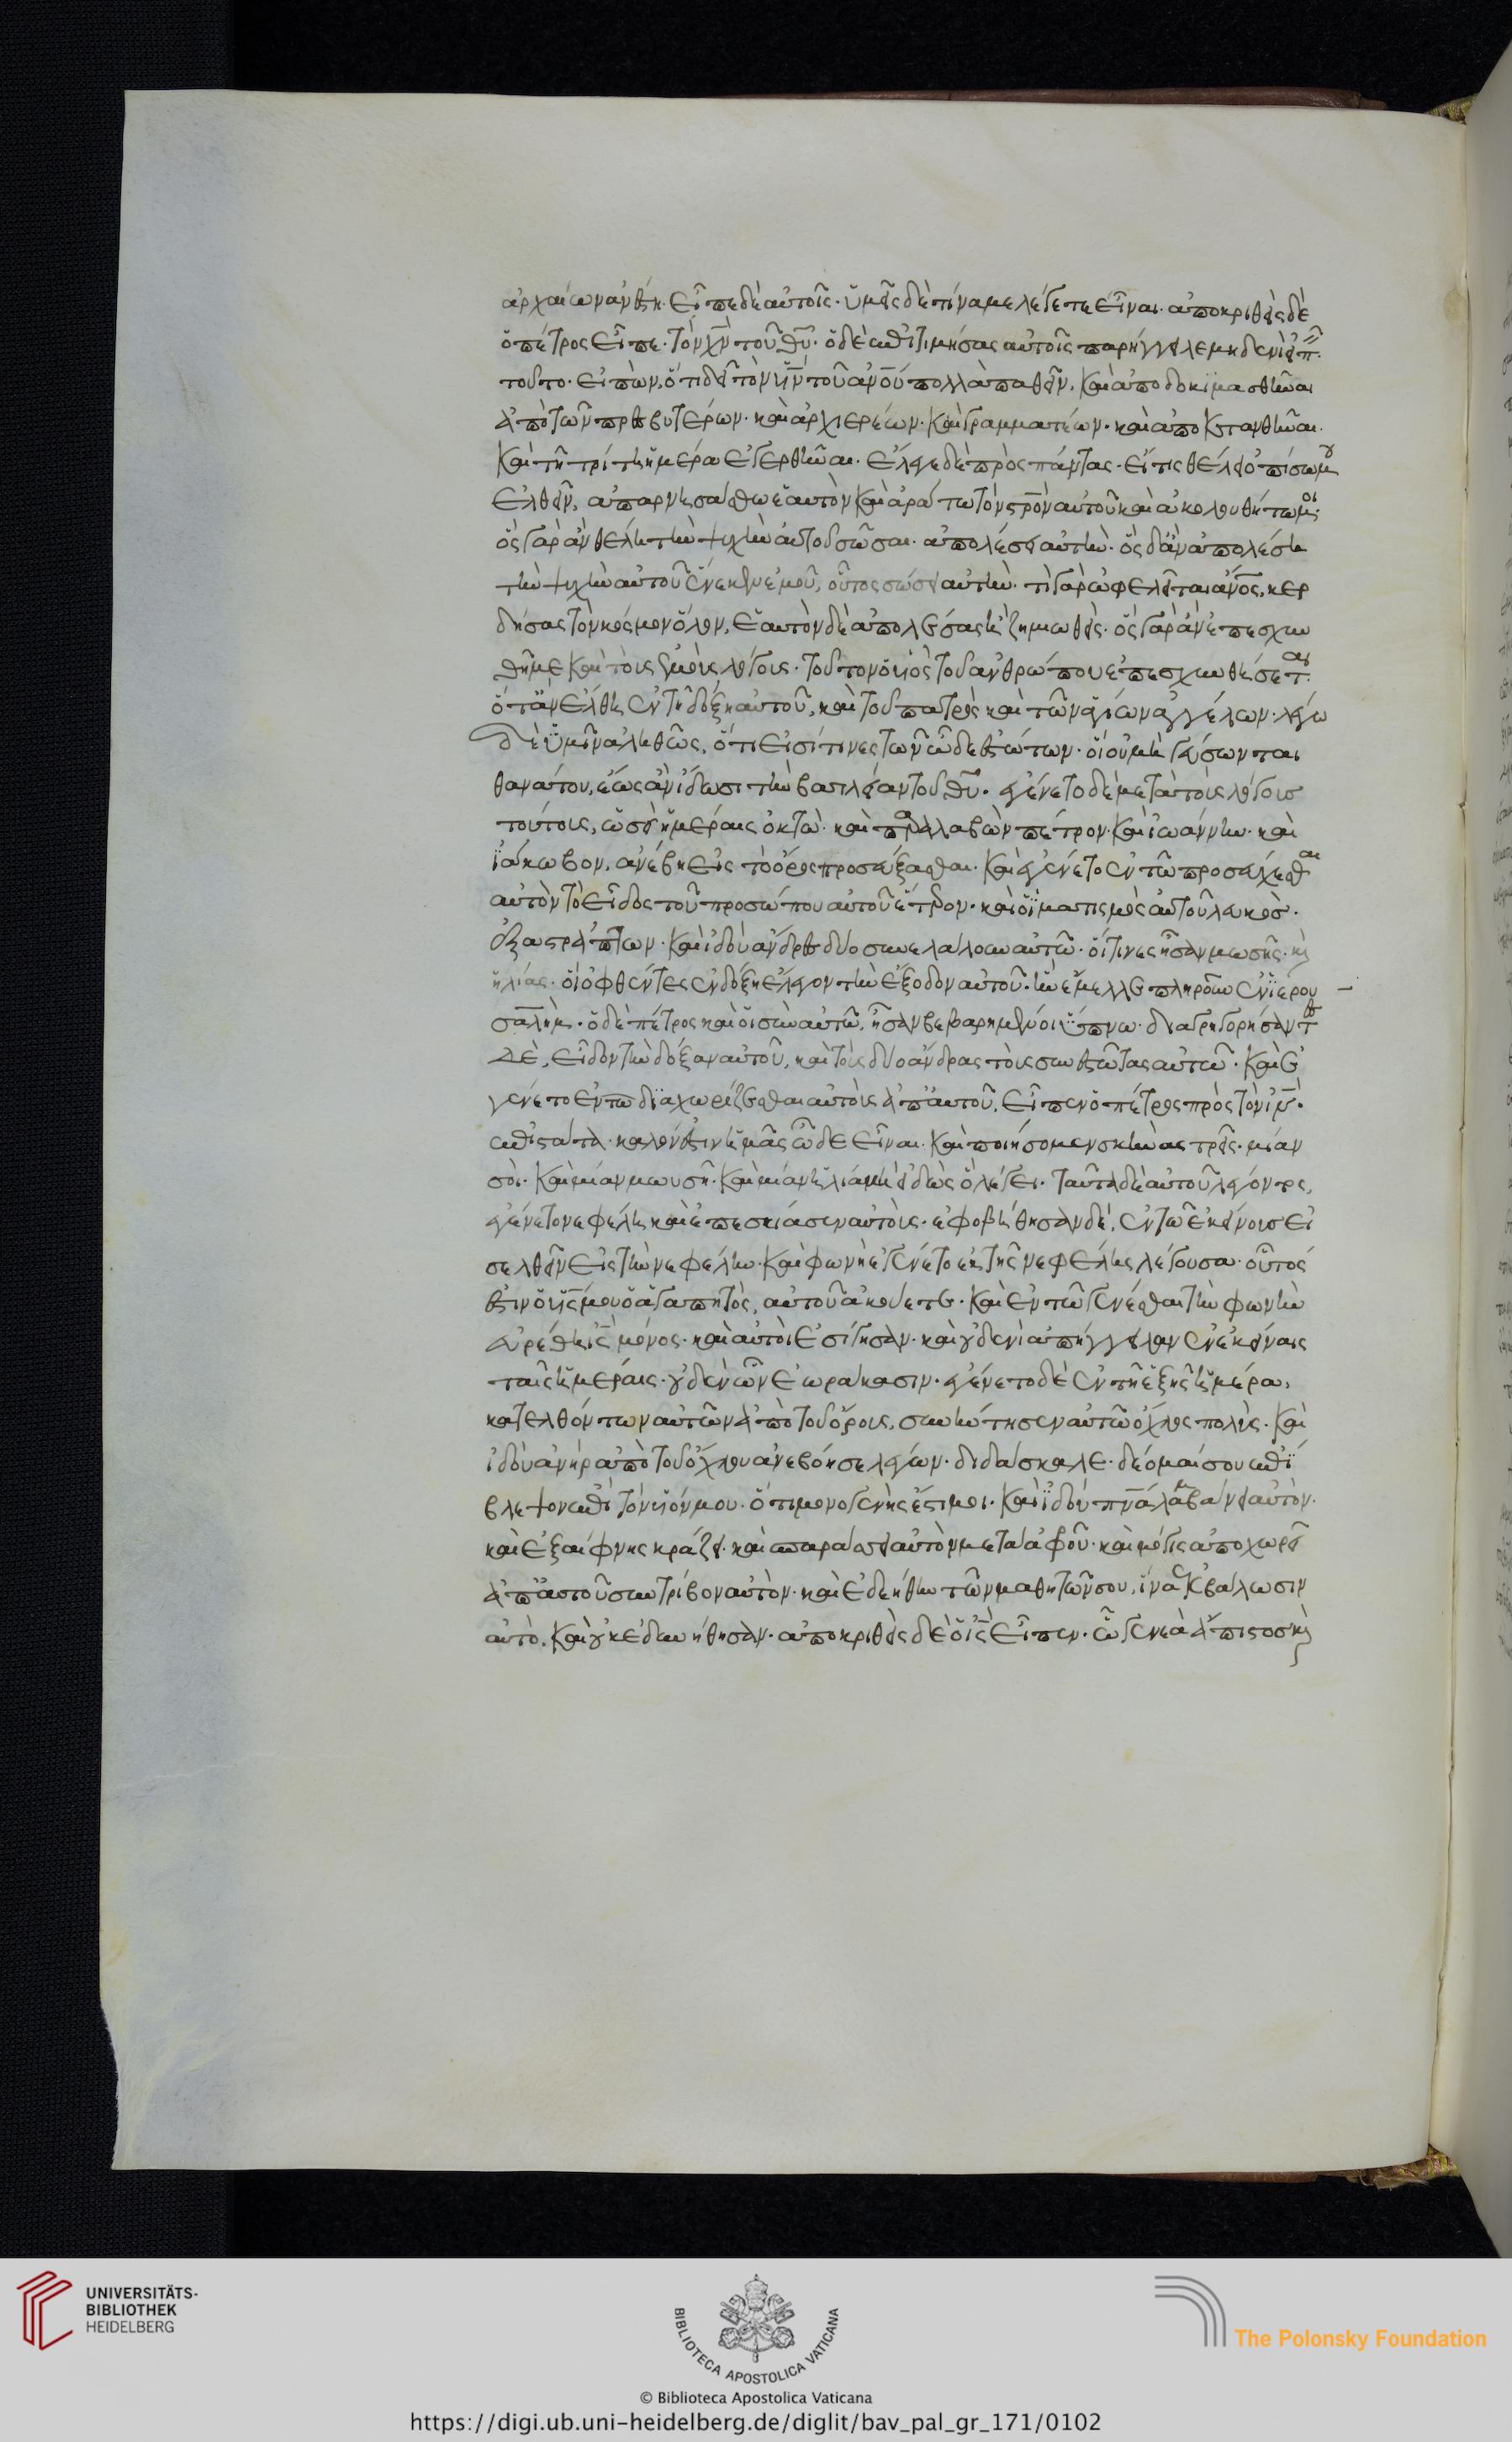 ἀρχαίων ἀνέστη. εἶπε δὲ αὐτοῖς. ὑμεῖς δὲ τίνα με λέγετε εἶναι. ἀποκριθεὶς δὲ
ὁ πέτρος εἶπε. τὸν χ̅ν̅ τοῦ θ̅υ̅. ὁ δὲ ἐπιτιμήσας αὐτοῖς παρήγγειλε μηδενὶ εἰπεῖν
τοῦτο. εἰπὼν, ὅτι δεῖ τὸν υ̅ν̅ τοῦ α̅ν̅ο̅υ̅ πολλὰ παθεῖν, καὶ ἀποδοκιμασθῆναι
ἀπὸ τῶν πρεσβυτέρων. καὶ ἀρχιερέων. καὶ γραμματέων. καὶ ἀποκτανθῆναι.
καὶ τῇ τρίτῃ ἡμέρα ἐγερθῆναι. ἔλεγε δὲ πρὸς πάντας. εἴ τις θέλει ὀπίσω μου
ἐλθεῖν, ἀπαρνησάσθω ἑαυτὸν καὶ ἀράτω τὸν σ̅ρ̅ο̅ν̅ αὐτοῦ καὶ ἀκολουθήτω μοι.
ὃς γὰρ ἂν θέλη τὴν ψυχὴν αὐτοῦ σῶσαι. ἀπολέσει αὐτήν. ὃς δ' ἂν ἀπολέση
τὴν ψυχὴν αὐτοῦ ἕνεκεν ἐμοῦ, οὗτος σώσει αὐτήν. τί γὰρ ὠφελεῖται α̅ν̅ο̅ς̅, κερ
δήσας τὸν κόσμον ὅλον, ἑαυτὸν δὲ ἀπολέσας ἢ ζημιωθείς. ὃς γὰρ ἂν ἐπεσχυν
θῆ με καὶ τοὺς ἐμοὺς λόγους. τοῦτον ὁ υἱὸς τοῦ ἀνθρώπου ἐπεσχυνθήσεται.
ὅταν ἔλθη ἐν τῇ δόξη αὐτοῦ, καὶ τοῦ πατρὸς καὶ τῶν ἁγίων ἀγγέλων. λέγω
δὲ ὑμῖν ἀληθῶς, ὅτι εἰσί τινες τῶν ὧδε ἑστώτων. οἳ οὐ μὴ γεύσωνται
θανάτου, ἕως ἂν ἴδωσι τὴν βασιλείαν τοῦ θ̅υ̅. ἐγένετο δὲ μετὰ τοὺς λόγους
τούτους, ὡσεὶ ἡμέραις ὀκτώ. καὶ παραλαβὼν πέτρον. καὶ ἰωάννην. καὶ
ἰάκωβον, ἀνέβη εἰς τὸ ὄρος προσεύξασθαι. καὶ ἐγένετο ἐν τῷ προσεύχεσθαι
αὐτὸν τὸ εἶδος τοῦ προσώπου αὐτοῦ ἕτερον. καὶ ὁ ἱματισμὸς αὐτοῦ λευκὸς.
ἐξαστράπτων. καὶ ἰδοὺ ἄνδρες δύο συνελάλουν αὐτῷ. οἵτινες ἦσαν μωσῆς. καὶ
ἠλίας. οἳ ὀφθέντες ἐν δόξη ἔλεγον τὴν ἔξοδον αὐτοῦ. ἣν ἔμελλε πληροῦν ἐν ἱερου
σαλήμ. ὁ δὲ πέτρος καὶ οἱ σὺν αὐτῷ, ἦσαν βεβαρημένοι ὕπνω. διαγρηγορήσαντες
δὲ, εἶδον τὴν δόξαν αὐτοῦ, καὶ τοὺς δύο ἄνδρας τοὺς συνεστῶτας αὐτῷ. καὶ ἐ
γένετο ἐν τῷ διαχωρίζεσθαι αὐτοὺς ἀπ' αὐτοῦ, εἶπεν ὁ πέτρος πρὸς τὸν ι̅ν̅.
ἐπιστάτα. καλόν ἐστιν ἡμᾶς ὧδε εἶναι. καὶ ποιήσομεν σκηνὰς τρεῖς. μίαν
σοὶ. καὶ μίαν μωυσῆ. καὶ μίαν ἠλία μὴ εἰδὼς ὃ λέγει. ταῦτα δὲ αὐτοῦ λέγοντος,
ἐγένετο νεφέλη καὶ ἐπεσκίασεν αὐτούς. ἐφοβήθησαν δὲ, ἐν τῷ ἐκείνους εἰ
σελθεῖν εἰς τὴν νεφέλην. καὶ φωνὴ ἐγένετο ἐκ τῆς νεφέλης λέγουσα. οὗτός
ἐστιν ὁ υ̅ς̅ μου ὁ ἀγαπητὸς, αὐτοῦ ἀκούετε. καὶ ἐν τῷ γενέσθαι τὴν φωνὴν
εὑρέθη ι̅ς̅ μόνος. καὶ αὐτοὶ ἐσίγησαν. καὶ οὐδενὶ ἀπήγγειλαν ἐν ἐκείναις
ταῖς ἡμέραις. οὐδὲν ὧν ἑωράκασιν. ἐγένετο δὲ ἐν τῇ ἑξῆς ἡμέρα,
κατελθόντων αὐτῶν ἀπὸ τοῦ ὄρους, συνήντησεν αὐτῷ ὄχλος πολύς. καὶ
ἰδοὺ ἀνὴρ ἀπὸ τοῦ ὄχλου ἀνεβόησε λέγων. διδάσκαλε. δέομαί σου ἐπί
βλεψον ἐπὶ τὸν υἱόν μου. ὅτι μονογενής ἐστι μοι. καὶ ἰδοὺ π̅ν̅α̅ λαμβάνει αὐτὸν.
καὶ ἐξαίφνης κράζει. καὶ σπαράσσει αὐτὸν μετὰ ἀφροῦ. καὶ μόγις ἀποχωρεῖ
ἀπ' αὐτοῦ συντρίβον αὐτόν. καὶ ἐδεήθην τῶν μαθητῶν σου, ἵνα ἐκβάλωσιν
αὐτὸ. καὶ οὐκ ἐδυνήθησαν. ἀποκριθεὶς δὲ ὁ ι̅ς̅ εἶπεν. ὦ γενεὰ ἄπιστος καὶ
UNIVERSITÄTS-
BIBLIOTHEK
HEIDELBERG
BIBLIOTECA APOSTOLICA VATICANA
The Polonsky Foundation
© Biblioteca Apostolica Vaticana
https://digi.ub.uni-heidelberg.de/diglit/bav_pal_gr_171/0102